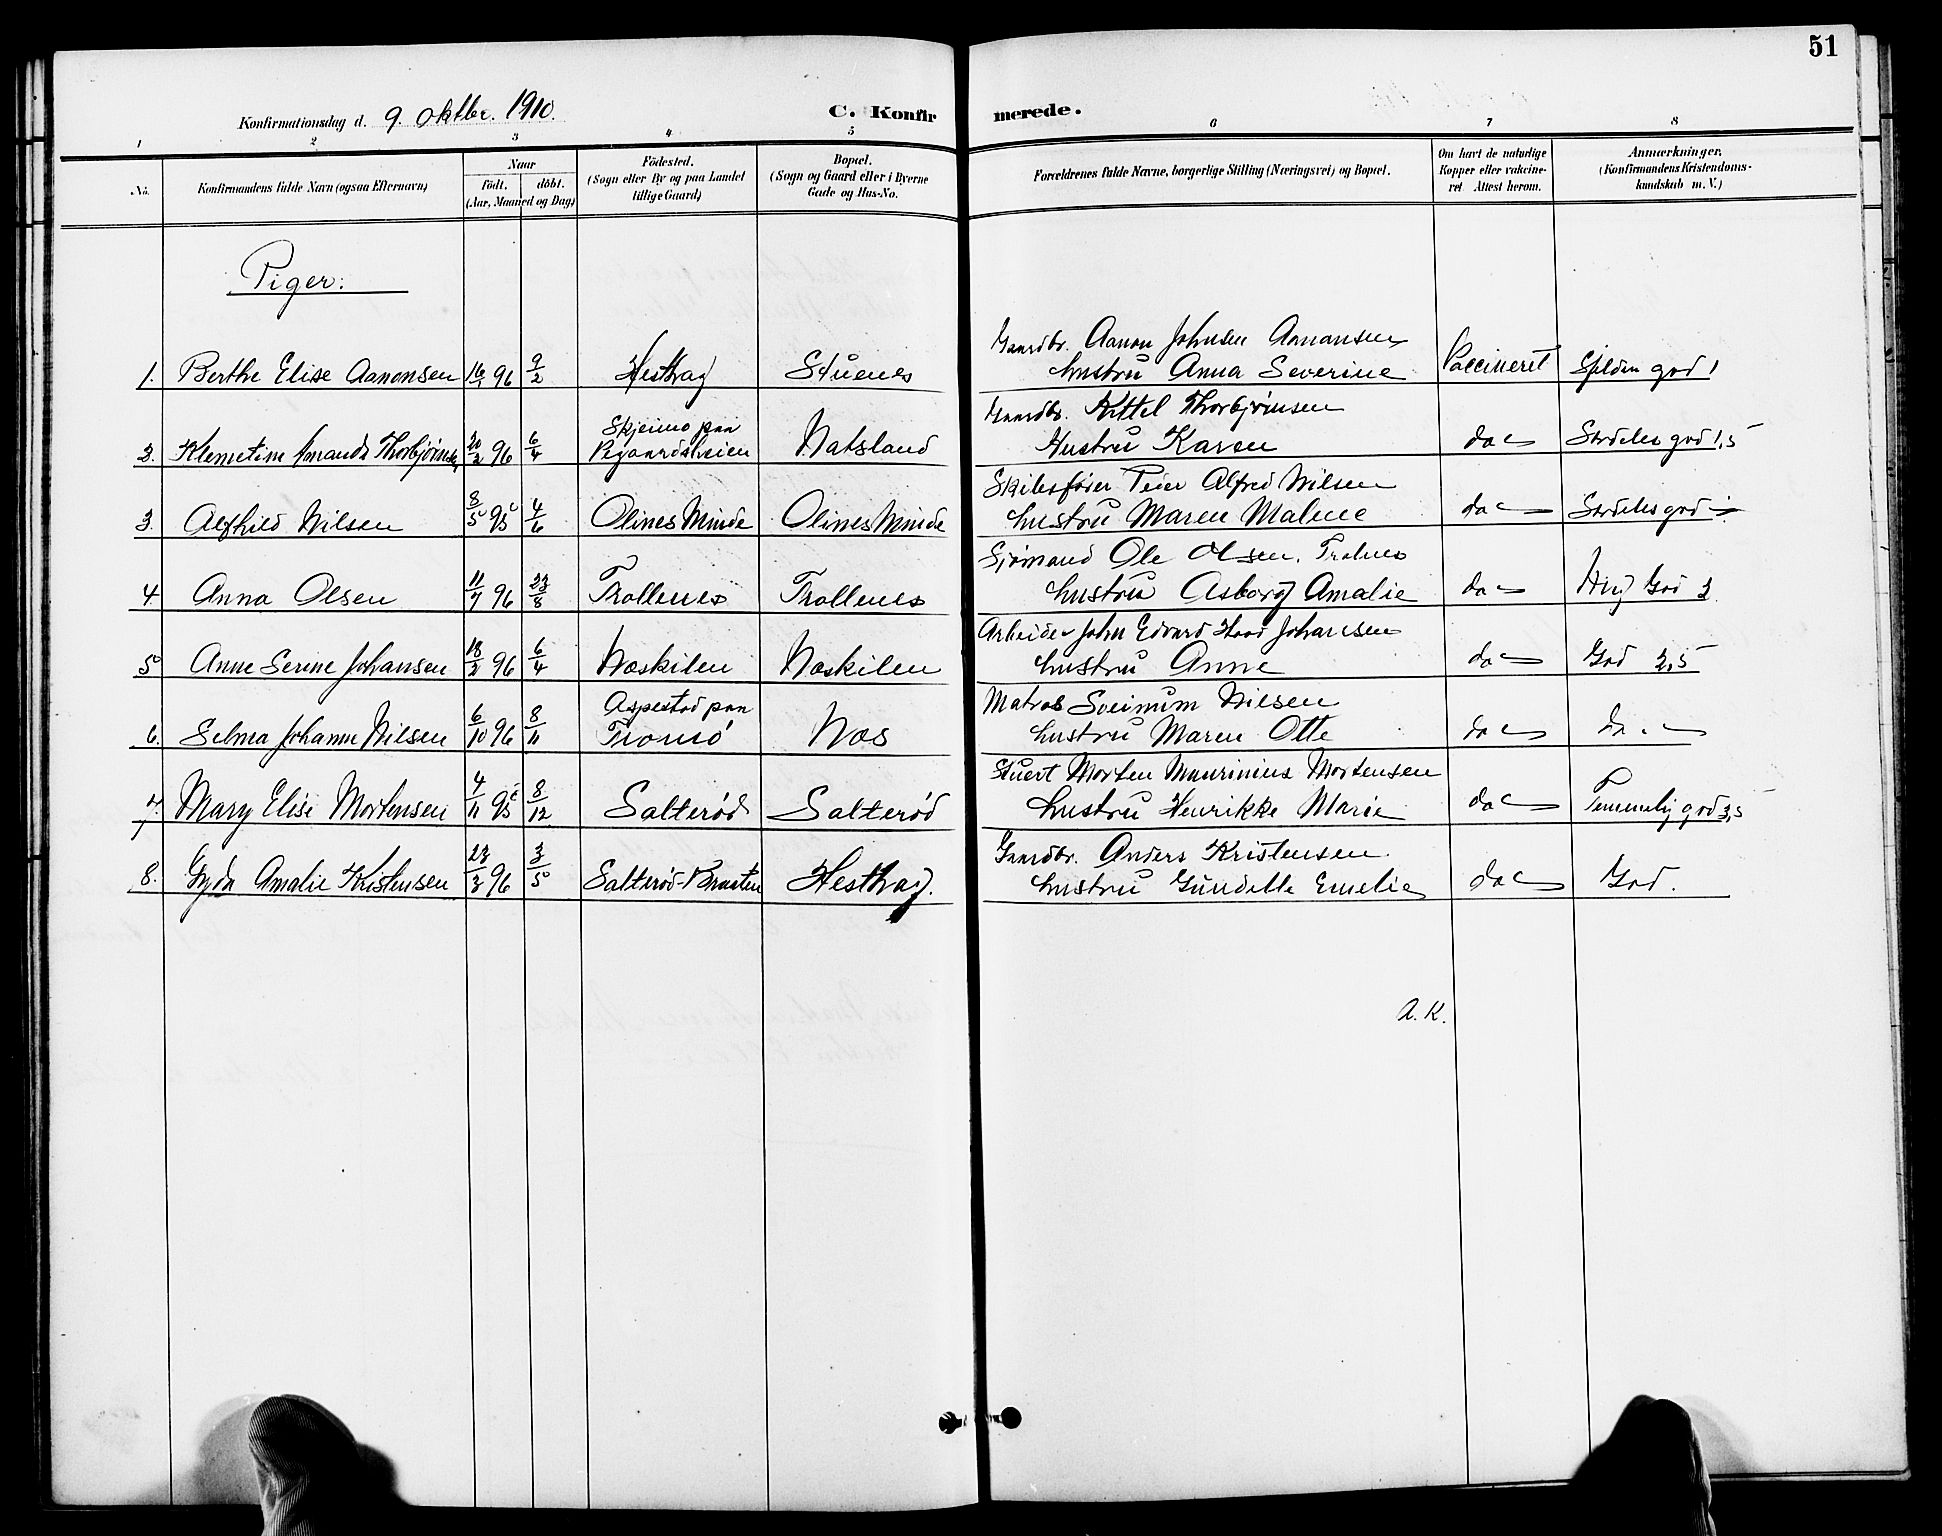 51
Konfirmationsdag d. 9. oktbr. 1910.
C. Konfirmerede.
1 2 3 4 5 6 7 8
No.
Konfirmandens fulde Navn (ogsaa Efternavn)
Naar
födt. döbt.
(Aar, Maaned og Dag)
Födested.
(Sogn eller By og paa Landet
tillige Gaard)
Bopæl.
(Sogn og Gaard eller i Byerne
Gade og Hus-No.
Forældrenes fulde Navne, borgerlige Stilling (Næringsvei) og Bopæl.
Om havt de naturlige
Kopper eller vakcine-
ret Attest herom.
Anmærkninger.
(Konfirmandens Kristendoms-
kundskab m. V.)
Piger:
Gaardbr. Aanon Johnsen Aanonsen
1. Berthe Elise Aanonsen 16/1 96 9/2 Hesthag Stuenes hustru Anna Severine Vaccineret Sjelden god 1
Skjeimo paa Gaardbr. Kittel Thorbjørnsen
2. Klemetine Amanda Thorbjørnsen 20/2 96 6/4 Natsland Hustru Karen do Særdeles god 1,5
Skibsfører Peder Alfred Nilsen
3. Alfhild Nilsen 8/5 95 4/6 Olines Minde Olines Minde hustru Maren Malene do Særdeles god
Sjømand Ole Olsen. Trolnes
4. Anna Olsen 11/7 96 23/8 Trollenes Trollenes hustru Asborg Amalie do Meg God 2
Arbeider John Edvard Johansen
5 Anne Serine Johansen 18/2 96 6/4 Næskilen Næskilen hustru Anne do God 2,5
Aspestad paa Matros Sveinum Nilsen
6. Selma Johanne Nilsen 6/10 96 8/11 Tromö Næs hustru Maren Otte do do
Stuert Morten Maurinius Mortensen
7. Mary Elise Mortensen 4/11 95 8/12 Salterød Salterød hustru Henrikke Marie do Temmelig god 3,5
Gaardbr. Anders Kristensen.
8. Gyda Amalie Kristensen 23/3 96 3/5 Salterød-Braaten Hesthag. hustru Gundelle Emelie do God.
A. K.